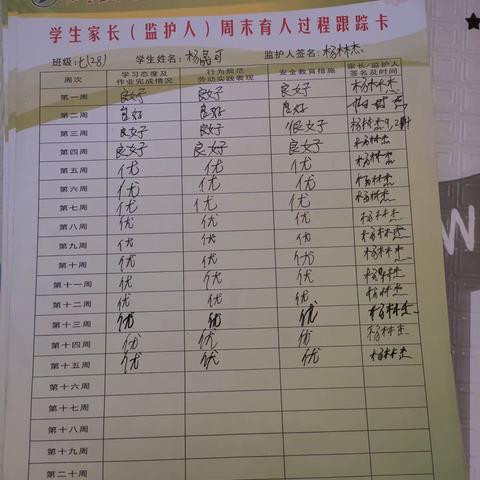 学生家长（监护人）周末育人过程跟踪卡
班级:七(28) 学生姓名:杨晶可 监护人签名:杨林杰
周次 学习态度及作业完成情况 行为规范劳动实践表现 安全教育措施 家长/监护人签名及时间
第一周 良好 良好 良好 杨林杰
第二周 良好 良好 良好 杨林杰
第三周 良好 良好 很好 杨林杰
第四周 良好 良好 良好 杨林杰
第五周 优 优 优 杨林杰
第六周 优 优 优 杨林杰
第七周 优 优 优 杨林杰
第八周 优 优 优 杨林杰
第九周 优 优 优 杨林杰
第十周 优 优 优 杨林杰
第十一周 优 优 优 杨林杰
第十二周 优 优 优 杨林杰
第十三周 优 优 优 杨林杰
第十四周 优 优 优 杨林杰
第十五周 优 优 优 杨林杰
第十六周
第十七周
第十八周
第十九周
第二十周
W